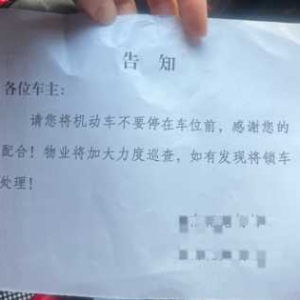 告 知
各位车主：
请您将机动车不要停在车位前，感谢您的
配合！物业将加大力度巡查，如有发现将锁车
处理！